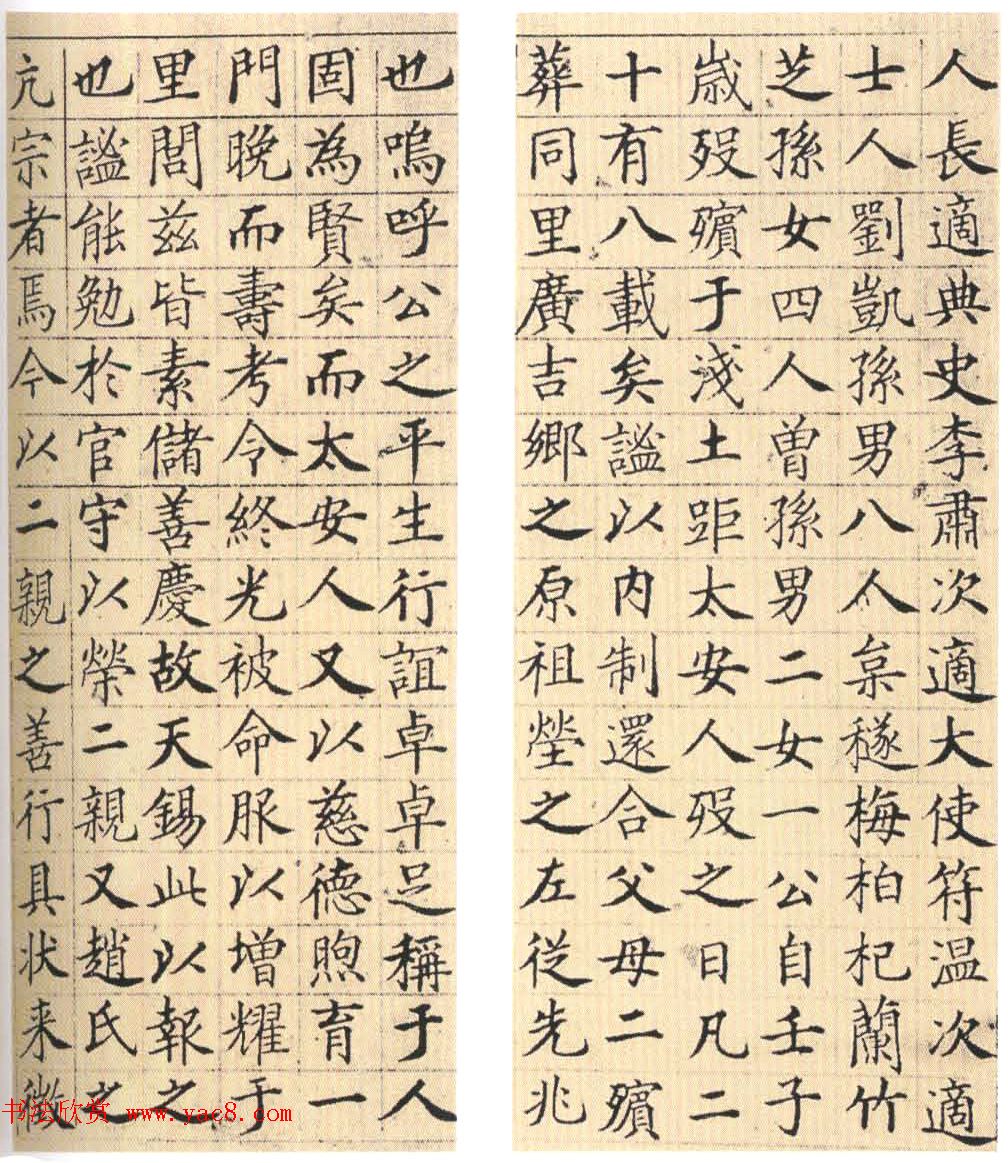 人長適典史李肅次適大使符温次適
士人劉凱孫男八人杲穟梅柏杞蘭竹
芝孫女四人曽孫男二女一公自壬子
歳歿殯于淺土距太安人歿之日凡二
十有八載矣謐以内制還合父母二殯
葬同里廣吉鄉之原祖塋之左從先兆
也嗚呼公之平生行誼卓卓足稱于人
固為賢矣而太安人又以慈德煦育一
門晚而壽考令終光被命服以增耀于
里閭兹皆素儲善慶故天錫此以報之
也謐能勉於官守以榮二親又趙氏之
亢宗者焉今以二親之善行具状来徵
书法欣赏 www.yac8.com